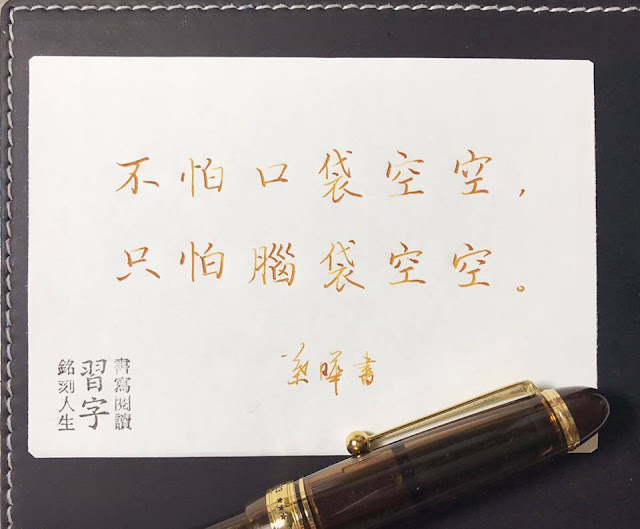 不怕口袋空空，
只怕腦袋空空。
書
書寫閱讀
習字
銘刻人生